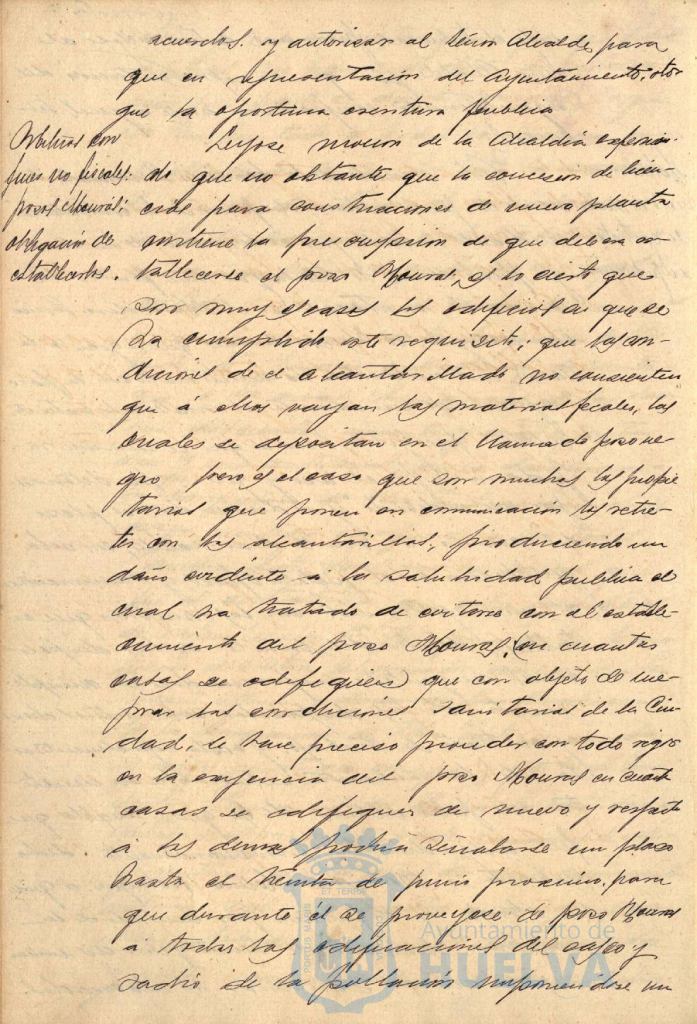 acuerdos. y autorizar al Señor Alcalde, para
que en representación del Ayuntamiento, otor
que la oportuna escritura publica
Arbitrios con
fines no fiscales:
pozos Mourás;
obligación de
establecerlos.
Leyose moción de la Alcaldia exponien-
do que no obstante que la concesion de licen-
cias para construcciones de nueva planta
contiene la prescripsion de que debera es-
tablecerse el pozo Mouras, es lo cierto que
son muy escasos los edificios en que se
ha cumplido este requisito; que las con-
diciones de el alcantarillado no consienten
que á ellos vayan las materias fecales, las
cuales se depositan en el llamado pozo ne-
gro pero es el caso que son muchos los propie
tarios que ponen en comunicación los retre-
tes con las alcantarillas, produciendo un
daño evidente á la salubridad publica el
cual ha tratado de evitarse con el estable-
cimiento del pozo Mouras, (en cuantas
casas se edifiquen) que con objeto de me-
jorar las condiciones sanitarias de la Ciu-
dad, se hace preciso proceder con todo rigor
en la exigencia del pozo Mouras en cuant
casas se edifiquen de nuevo y respecto
á las demas podria señalarse un plazo
hasta el treinta de junio proximo, para
que durante él se proveyese de pozo Mouras
á todas las edificaciones del casco y
radio de la población imponiendose un
Ayuntamiento de
HUELVA